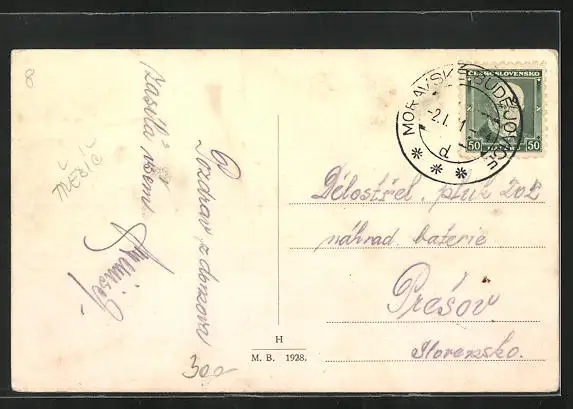 8
Pozdrav z domova
zasílá všem
MĚSÍC
300
H
M. B. 1928.
ČESKOSLOVENSKO
50 50
MORAVSKÉ BUDĚJOVICE
-2.I.
d
Dělostřel. pluk 202
náhrad. baterie
Prešov
Slovensko.